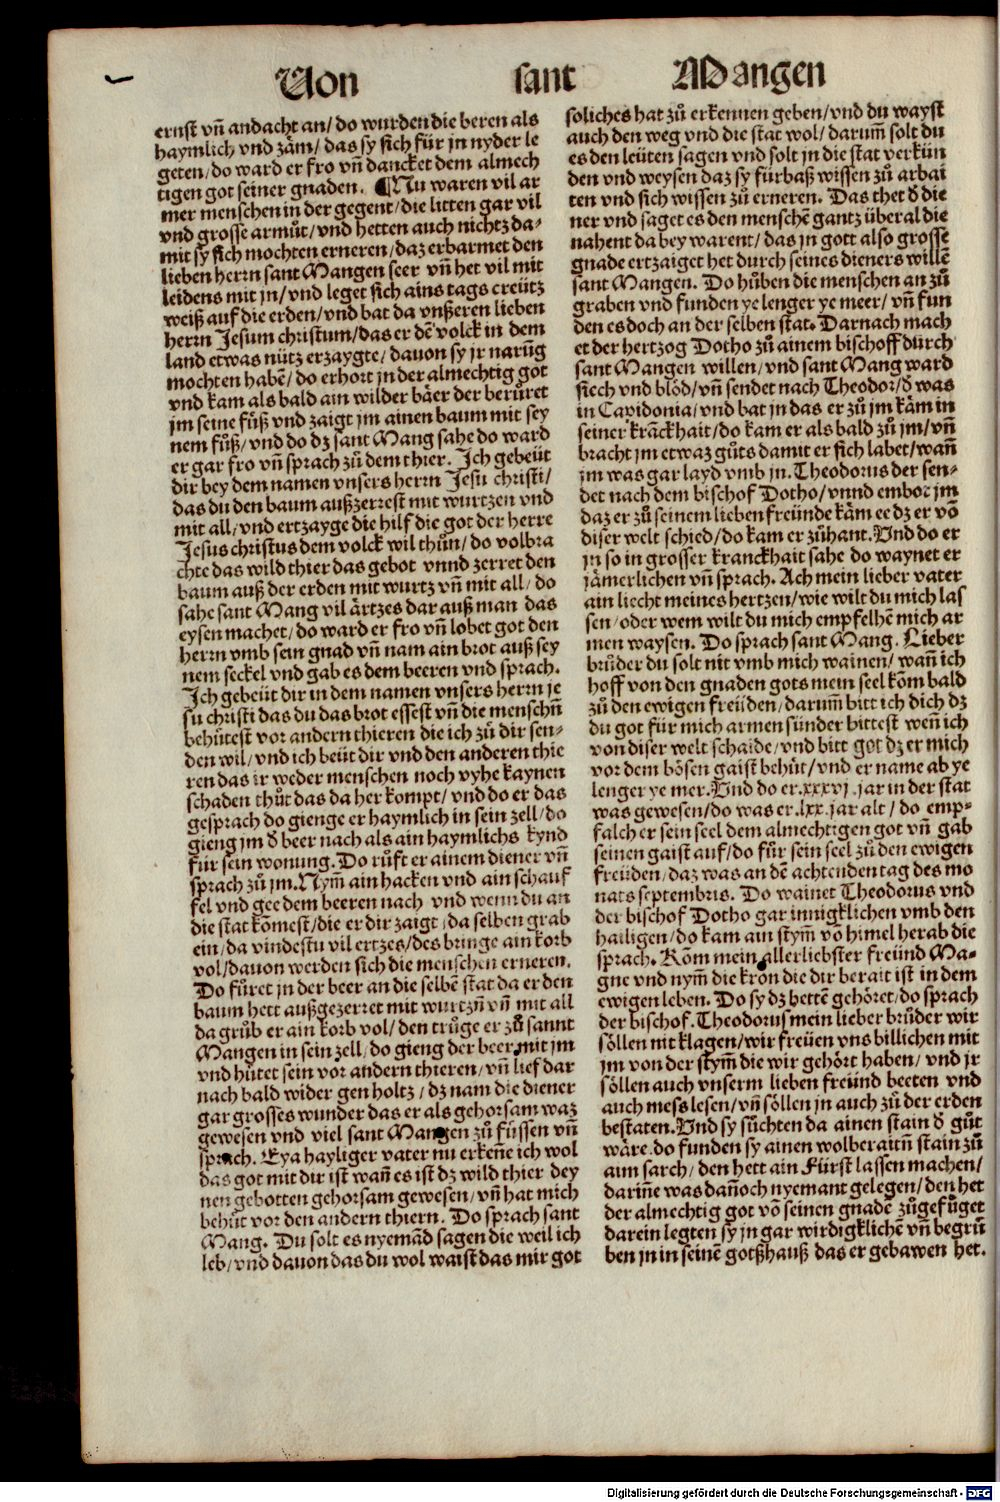 Von sant Mangen
ernst vñ andacht an/ do wurden die beren als
haymlich vnd zäm/ das sy sich für jn nyder le
geten/ do ward er fro vñ dancket dem almech
tigen got seiner gnaden. ¶ Nu waren vil ar
mer menschen in der gegent/ die litten gar vil
vnd grosse armůt/ vnd hetten auch nichtz da-
mit sy sich mochten erneren/ daz erbarmet den
lieben herrn sant Mangen seer vñ het vil mit
leidens mit jn/ vnd leget sich ains tags creütz
weiß auf die erden/ vnd bat da vnßeren lieben
herrn Jesum christum/ das er dē volck in dem
land etwas nütz erzaygte/ dauon sy jr narūg
mochten habē/ do erhort jn der almechtig got
vnd kam als bald ain wilder bäer der berůret
jm seine fůß vnd zaigt jm ainen baum mit sey
nem fůß/ vnd do dz sant Mang sahe do ward
er gar fro vñ sprach zů dem thier. Ich gebeüt
dir bey dem namen vnsers herrn Jesu christi/
das du den baum außzerrest mit wurtzen vnd
mit all/ vnd ertzayge die hilf die got der herre
Jesus christus dem volck wil thůn/ do volbra
chte das wild thier das gebot vnnd zerret den
baum auß der erden mit wurtz vñ mit all/ do
sahe sant Mang vil ärtzes dar auß man das
eysen machet/ do ward er fro vñ lobet got den
herrn vmb sein gnad vñ nam ain brot auß sey
nem seckel vnd gab es dem beeren vnd sprach.
Ich gebeüt dir in dem namen vnsers herrn je
su christi das du das brot essest vñ die menschñ
behůtest vor andern thieren die ich zů dir sen-
den wil/ vnd ich beüt dir vnd den anderen thie
ren das ir weder menschen noch vyhe kaynen
schaden thůt das da her kompt/ vnd do er das
gesprach do gienge er haymlich in sein zell/ do
gieng jm d̕ beer nach als ain haymlichs kynd
für sein wonung. Do růft er ainem diener vñ
sprach zů jm. Nym̄ ain hacken vnd ain schauf
fel vnd gee dem beeren nach vnd wenn du an
die stat kōmest/ die er dir zaigt/ da selben grab
ein/ da vindestu vil ertzes/ des bringe ain korb
vol/ dauon werden sich die menschen erneren.
Do fůret jn der beer an die selbē stat da er den
baum hett außgezerret mit wurtzñ vñ mit all
da grůb er ain korb vol/ den trůge er zů sannt
Mangen in sein zell/ do gieng der beer mit jm
vnd hůtet sein vor andern thieren/ vñ lief dar
nach bald wider gen holtz/ dz nam die diener
gar grosses wunder das er als gehorsam waz
gewesen vnd viel sant Mangen zů füssen vñ
sprach. Eya hayliger vater nu erkeñe ich wol
das got mit dir ist wañ es ist dz wild thier dey
nen gebotten gehorsam gewesen/ vñ hat mich
behůt vor den andern thiern. Do sprach sant
Mang. Du solt es nyemād sagen die weil ich
leb/ vnd dauon das du wol waist das mir got
soliches hat zů erkennen geben/ vnd du wayst
auch den weg vnd die stat wol/ darum̄ solt du
es den leüten sagen vnd solt jn die stat verkün
den vnd weysen daz sy fürbaß wissen zů arbai
ten vnd sich wissen zů erneren. Das thet d̕ die
ner vnd saget es den menschē gantz über al die
nahent da bey warent/ das jn gott also grosse
gnade ertzaiget het durch seines dieners willē
sant Mangen. Do hůben die menschen an zů
graben vnd funden ye lenger ye meer/ vñ fun
den es doch an der selben stat. Darnach mach
et der hertzog Dotho zů ainem bischoff durch
sant Mangen willen/ vnd sant Mang ward
siech vnd blöd/ vñ sendet nach Theodor/ d̕ was
in Cavidonia/ vnd bat jn das er zů jm käm in
seiner krāckhait/ do kam er als bald zů jm/ vñ
bracht jm etwaz gůts damit er sich labet/ wañ
jm was gar layd vmb jn. Theodorus der sen-
det nach dem bischof Dotho/ vnnd embot jm
daz er zů seinem lieben freünde käm ee dz er vō
diser welt schied/ do kam er zůhant. Vnd do er
jn so in grosser kranckhait sahe do waynet er
jämerlichen vñ sprach. Ach mein lieber vater
ain liecht meines hertzen/ wie wilt du mich las
sen/ oder wem wilt du mich empfelhē mich ar
men waysen. Do sprach sant Mang. Lieber
brůder du solt nit vmb mich wainen/ wañ ich
hoff von den gnaden gots mein seel kōm bald
zů den ewigen freüden/ darum̄ bitt ich dich dz
du got für mich armen sünder bittest weñ ich
von diser welt schaide/ vnd bitt got dz er mich
vor dem bösen gaist behůt/ vnd er name ab ye
lenger ye mer. Vnd do er .xxxvj. jar in der stat
was gewesen/ do was er .lxx. jar alt/ do emp-
falch er sein seel dem almechtigen got vñ gab
seinen gaist auf/ do für sein seel zů den ewigen
freüden/ daz was an dē achtenden tag des mo
nats septembris. Do wainet Theodorus vnd
der bischof Dotho gar innigklichen vmb den
hailigen/ do kam ain stym̄ vō himel herab die
sprach. Kōm mein allerliebster freünd Ma-
gne vnd nym̄ die kron die dir berait ist in dem
ewigen leben. Do sy dz bettē gehöret/ do sprach
der bischof. Theodorus mein lieber brůder wir
söllen nit klagen/ wir freüen vns billichen mit
jm von der stym̄ die wir gehört haben/ vnd jr
söllen auch vnserm lieben freünd beeten vnd
auch mess lesen/ vñ söllen jn auch zů der erden
bestaten. Vnd sy sůchten da ainen stain d̕ gůt
wäre. do funden sy ainen wolberaitñ stain zů
aim sarch/ den hett ain Fürst lassen machen/
dariñe was dañoch nyemant gelegen/ den het
der almechtig got vō seinen gnadē zůgefůget
darein legten sy jn gar wirdigklichē vñ begrů
ben jn in seinē gotßhauß das er gebawen het.
Digitalisierung gefördert durch die Deutsche Forschungsgemeinschaft - DFG